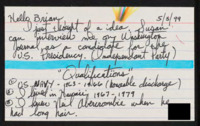 Hello, Brian, 5/5/99
I just thought of a idea. Susan
can interview me for Washington
Journal as a candidate for the
U.S. Presidency. (Independent Party)
"Qualifications"
① U.S. NAVY - 1961-1966 (honorable discharge)
② I lived in Hawaii, 1967-1979
③ I knew Neil Abercrombie when he
had long hair.